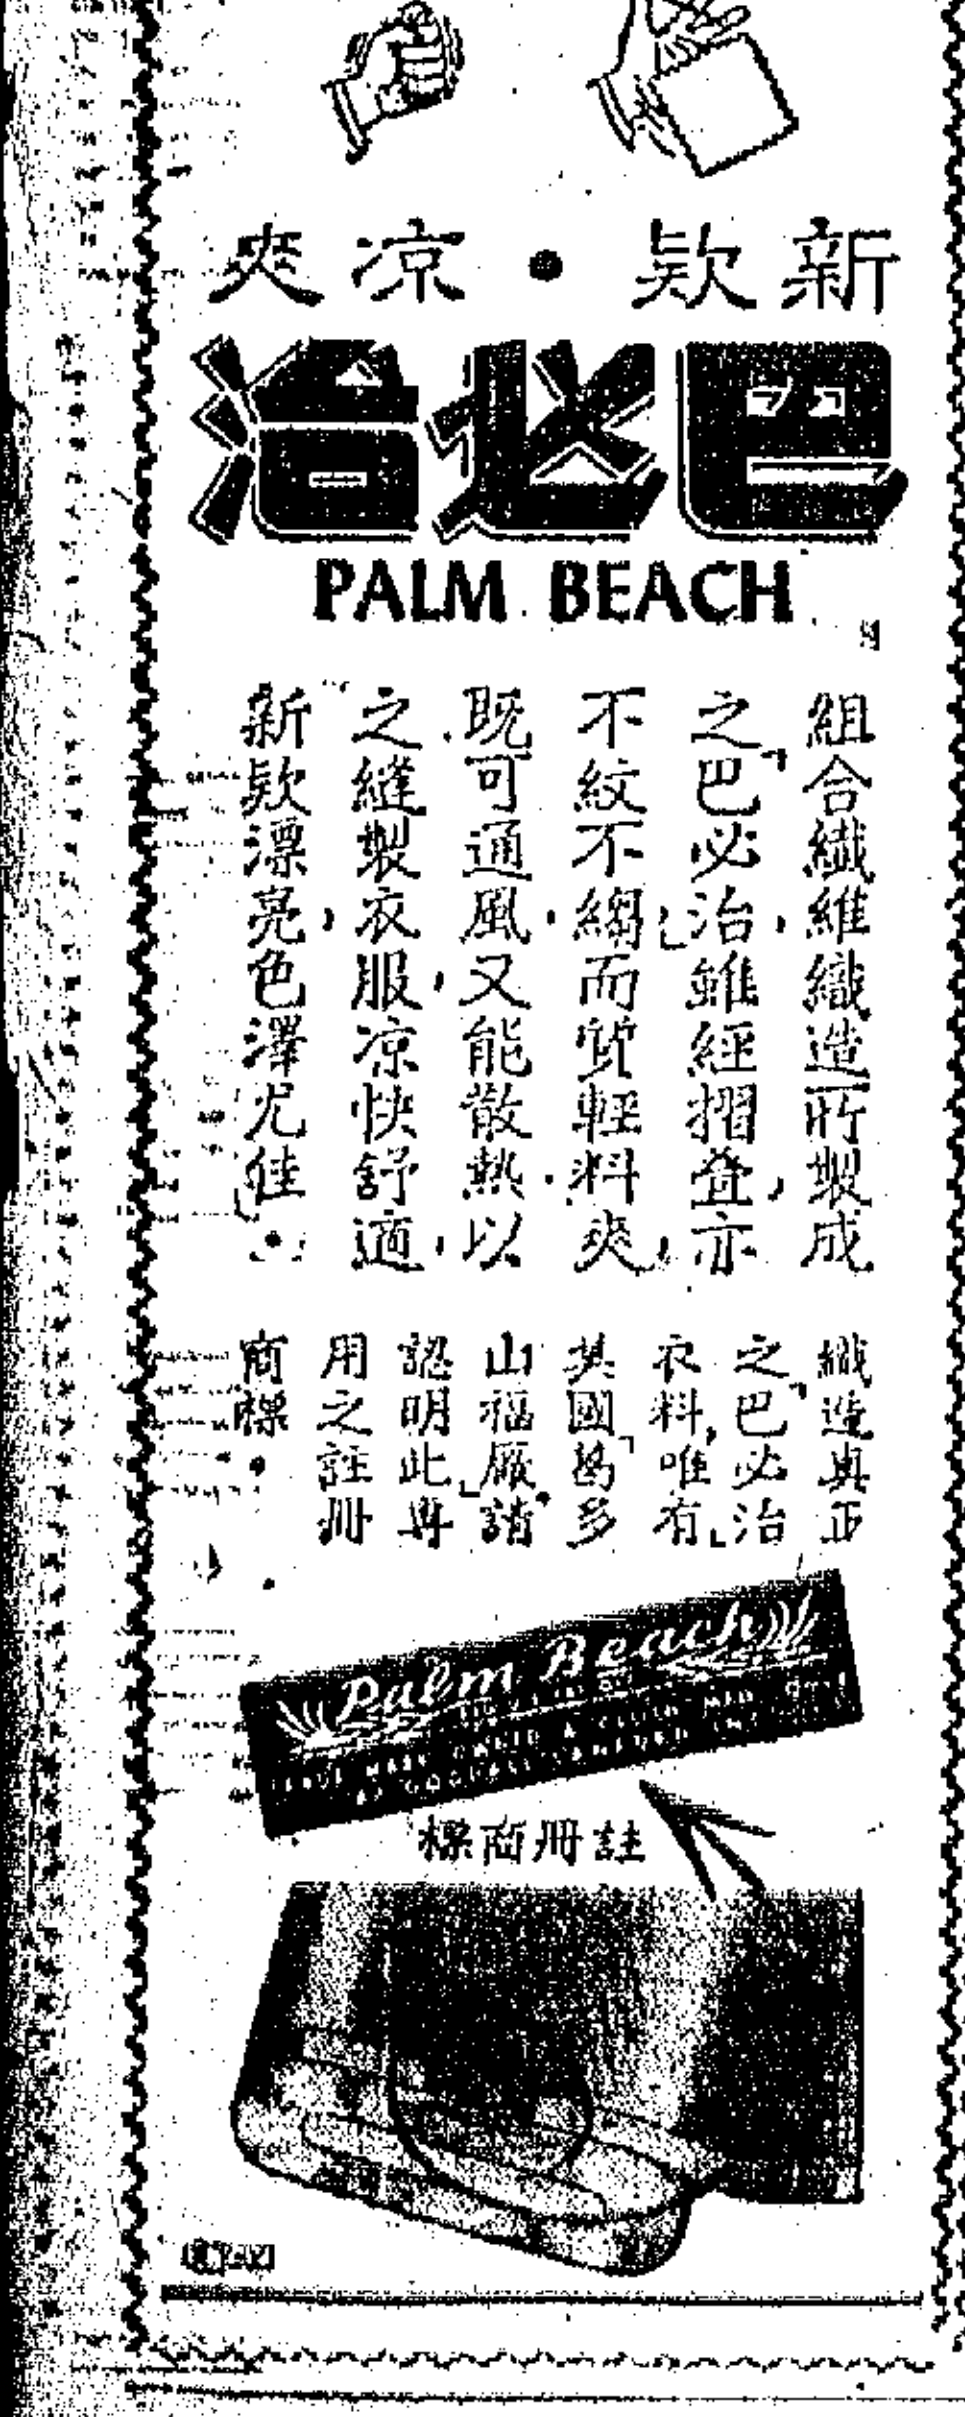 新欵・凉爽
巴必治
PALM BEACH
組合纖維織造所製成
之「巴必治」雖經摺叠,亦
不紋不縐,而質輕料爽,
既可通風,又能散熱.以
之縫製衣服,凉快舒適,
新欵漂亮,色澤尤佳。
織造眞正
之「巴必治」
衣料,唯有
英國「葛多
山福廠」請
認明此專
用之註冊
商標。
Palm Beach
註冊商標